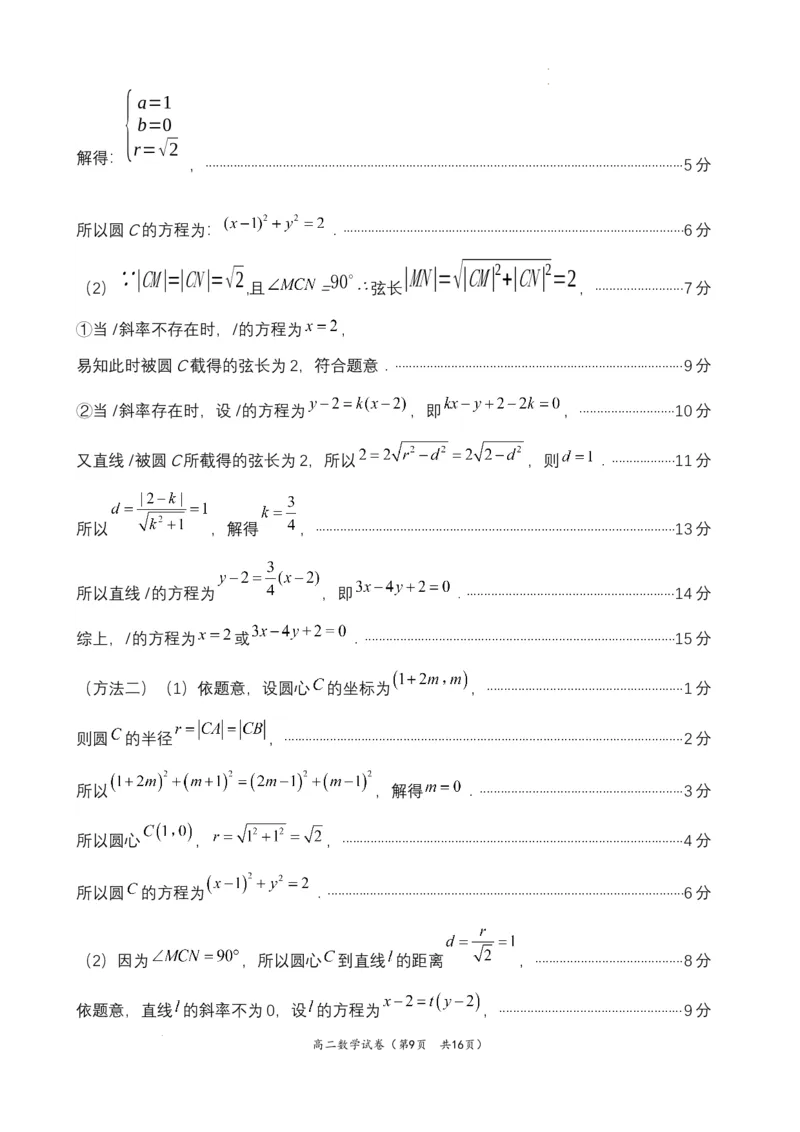 解得：{a=1 b=0 r=√2 ，5分
所以圆C的方程为：(x−1)²+y²=2．6分
（2）∵|CM|=|CN|=√2,且∠MCN=90°∴弦长|MN|=√(|CM|²+|CN|²)=2，7分
①当l斜率不存在时，l的方程为x=2，
易知此时被圆C截得的弦长为2，符合题意．9分
②当l斜率存在时，设l的方程为y−2=k(x−2)，即kx−y+2−2k=0，10分
又直线l被圆C所截得的弦长为2，所以2=2√(r²−d²)=2√(2−d²)，则d=1．11分
所以d=|2−k|/√(k²+1)=1，解得k=3/4，13分
所以直线l的方程为y−2=3/4(x−2)，即3x−4y+2=0．14分
综上，l的方程为x=2或3x−4y+2=0．15分
（方法二）（1）依题意，设圆心C的坐标为(1+2m,m)，1分
则圆C的半径r=|CA|=|CB|，2分
所以(1+2m)²+(m+1)²=(2m−1)²+(m−1)²，解得m=0．3分
所以圆心C(1,0)，r=√(1²+1²)=√2，4分
所以圆C的方程为(x−1)²+y²=2．6分
（2）因为∠MCN=90°，所以圆心C到直线l的距离d=r/√2=1，8分
依题意，直线l的斜率不为0，设l的方程为x−2=t(y−2)，9分
高二数学试卷（第9页 共16页）